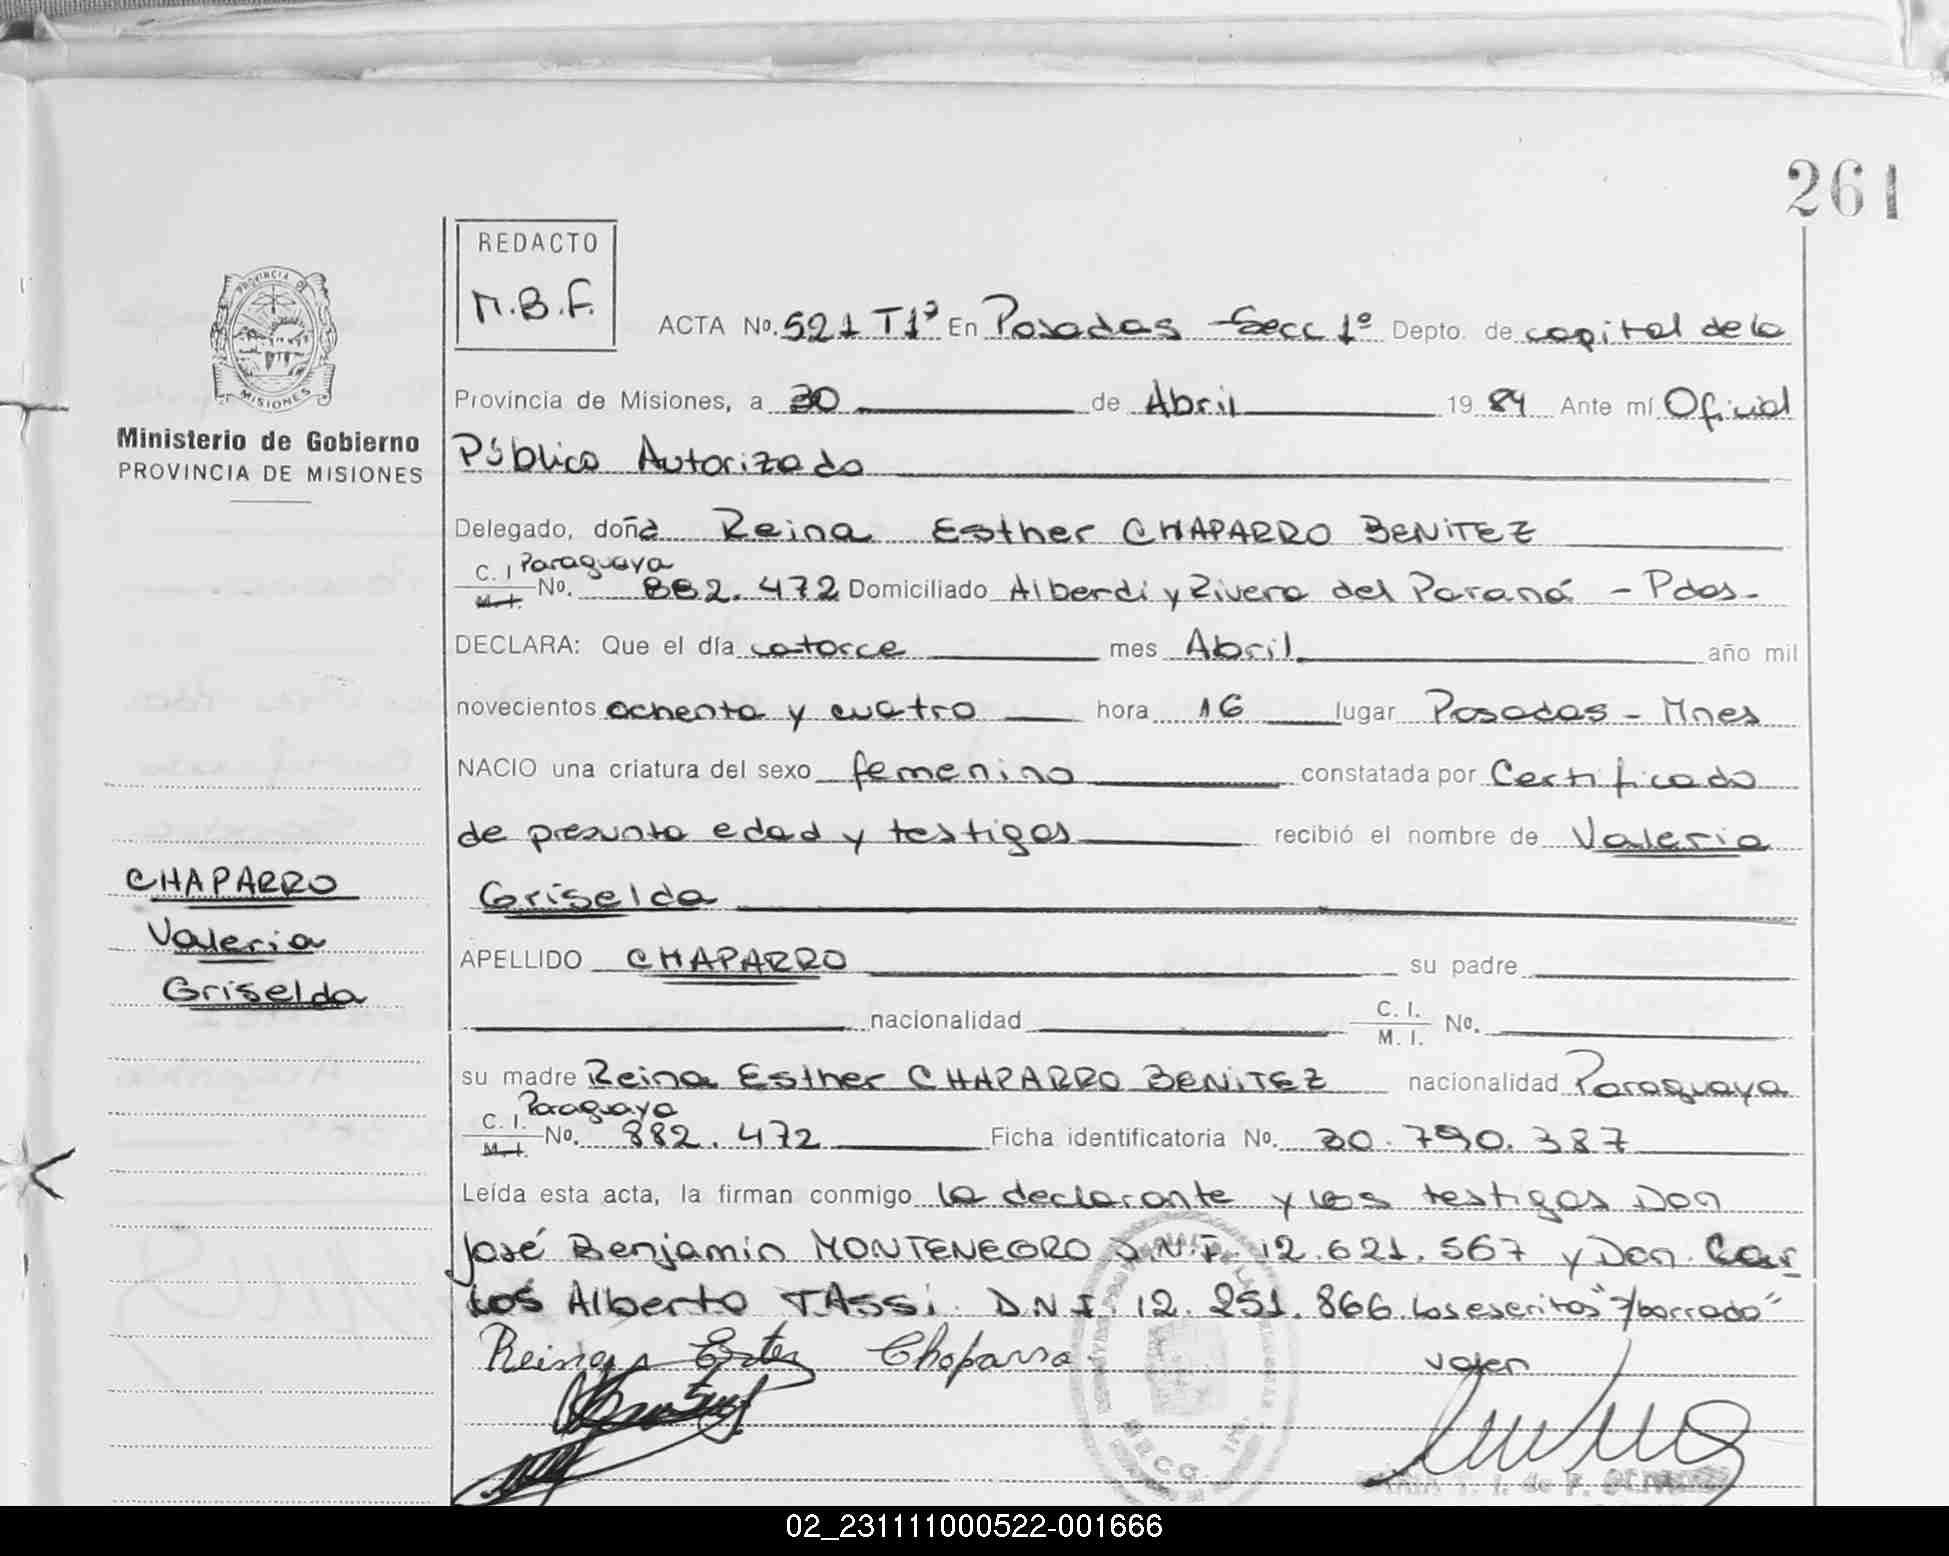 261
REDACTO
M.B.F.
PROVINCIA DE
MISIONES
Ministerio de Gobierno
PROVINCIA DE MISIONES
ACTA No. 521 T1º En Posadas - Secc 1º Depto. de capital de la
Provincia de Misiones, a 30 de Abril 19 84 Ante mí Oficial
Público Autorizado
Delegado, doña Reina Esther CHAPARRO BENITEZ
C. I. Paraguaya
M. I. No. 882.472 Domiciliado Alberdi y Rivera del Paraná - Pdas -
DECLARA: Que el día catorce mes Abril año mil
novecientos ochenta y cuatro hora 16 lugar Posadas - Mnes
NACIO una criatura del sexo femenino constatada por Certificado
de presunta edad y testigos recibió el nombre de Valeria
Griselda
APELLIDO CHAPARRO su padre
nacionalidad C. I. M. I. No.
su madre Reina Esther CHAPARRO BENITEZ nacionalidad Paraguaya
C. I. Paraguaya
M. I. No. 882.472 Ficha identificatoria No. 30.790.387
Leída esta acta, la firman conmigo la declarante y los testigos Don
José Benjamin MONTENEGRO D.N.I. 12.621.567 y Don Car
los Alberto TASSi D.N.I. 12.251.866. Los escritos "s/borrado"
valen
Reina Ester Chaparro
CHAPARRO
Valeria
Griselda
02_231111000522-001666